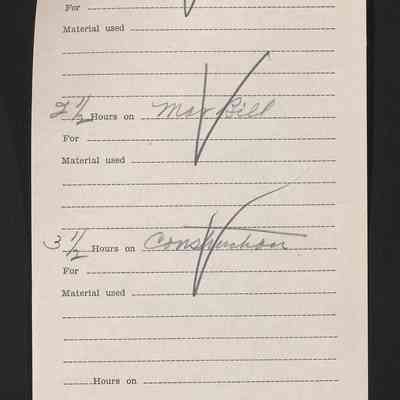 For
Material used
2 1/2 Hours on Mar Bill
For
Material used
3 1/2 Hours on Construction
For
Material used
Hours on